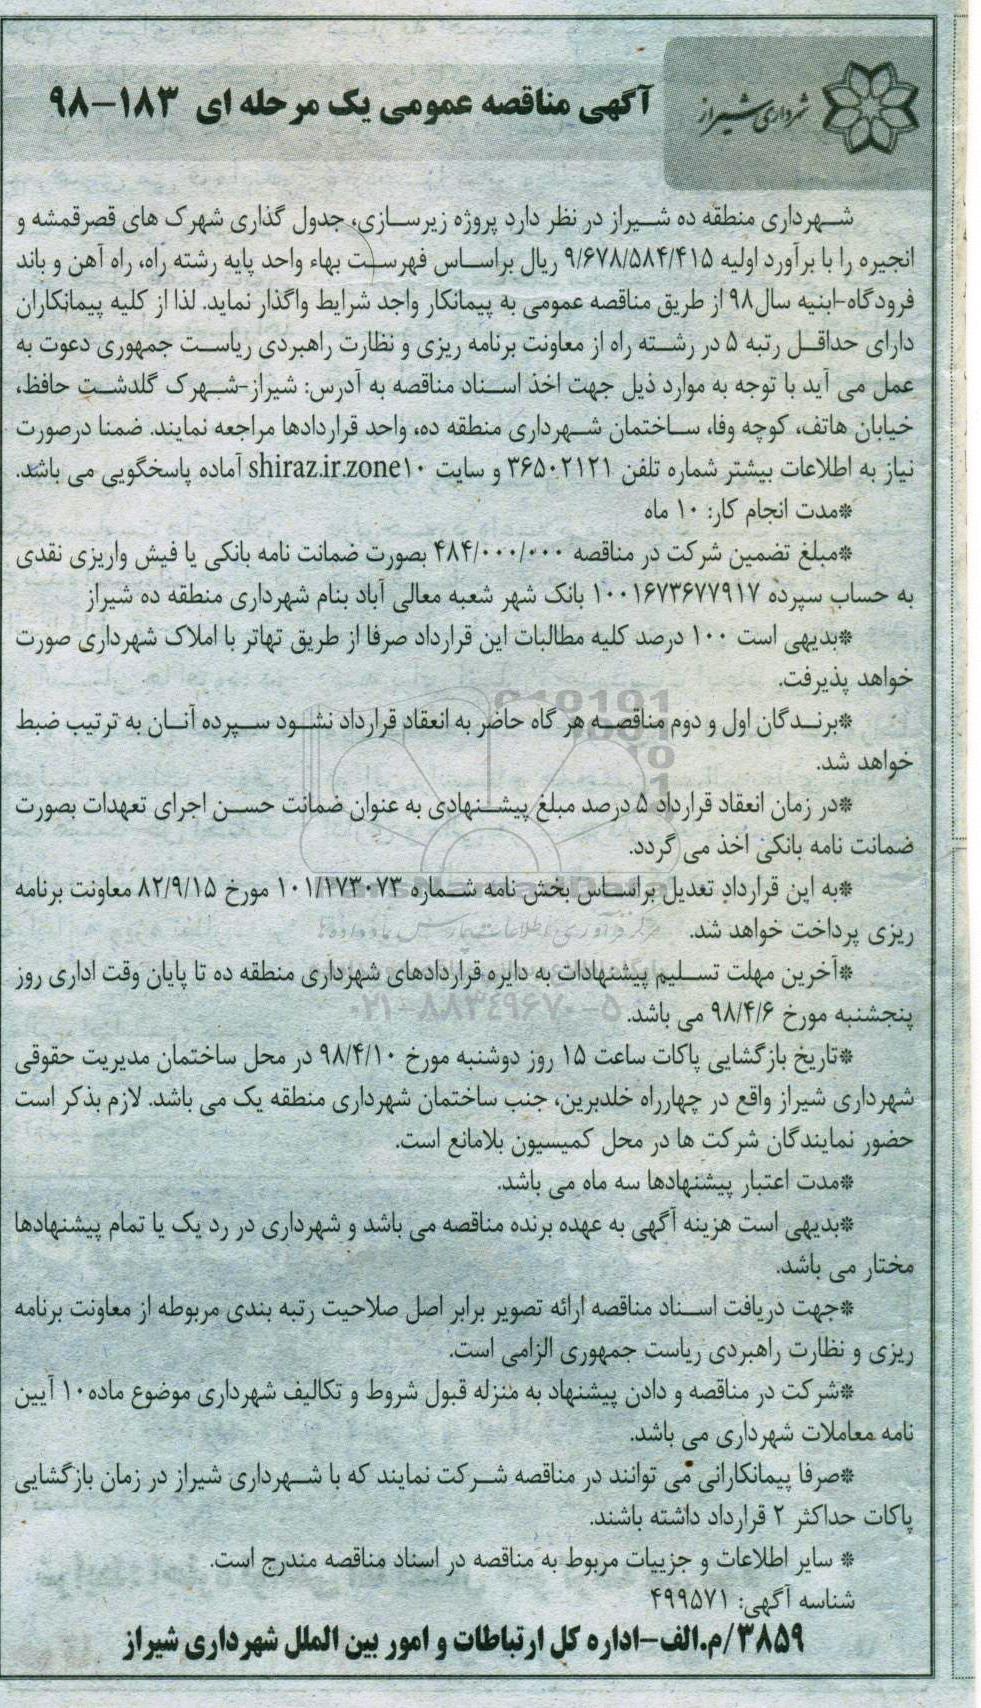 شهرداری شیراز
آگهی مناقصه عمومی یک مرحله ای ۱۸۳-۹۸
شهرداری منطقه ده شیراز در نظر دارد پروژه زیرسازی، جدول گذاری شهرک های قصرقمشه و
انجیره را با برآورد اولیه ۹/۶۷۸/۵۸۴/۴۱۵ ریال براساس فهرست بهاء واحد پایه رشته راه، راه آهن و باند
فرودگاه-ابنیه سال۹۸ از طریق مناقصه عمومی به پیمانکار واجد شرایط واگذار نماید. لذا از کلیه پیمانکاران
دارای حداقل رتبه ۵ در رشته راه از معاونت برنامه ریزی و نظارت راهبردی ریاست جمهوری دعوت به
عمل می آید با توجه به موارد ذیل جهت اخذ اسناد مناقصه به آدرس: شیراز-شهرک گلدشت حافظ،
خیابان هاتف، کوچه وفا، ساختمان شهرداری منطقه ده، واحد قراردادها مراجعه نمایند. ضمنا درصورت
نیاز به اطلاعات بیشتر شماره تلفن ۳۶۵۰۲۱۲۱ و سایت shiraz.ir.zone۱۰ آماده پاسخگویی می باشد.
*مدت انجام کار: ۱۰ ماه
*مبلغ تضمین شرکت در مناقصه ۴۸۴/۰۰۰/۰۰۰ بصورت ضمانت نامه بانکی یا فیش واریزی نقدی
به حساب سپرده ۱۰۰۱۶۷۳۶۷۷۹۱۷ بانک شهر شعبه معالی آباد بنام شهرداری منطقه ده شیراز
*بدیهی است ۱۰۰ درصد کلیه مطالبات این قرارداد صرفا از طریق تهاتر با املاک شهرداری صورت
خواهد پذیرفت.
*برندگان اول و دوم مناقصه هر گاه حاضر به انعقاد قرارداد نشود سپرده آنان به ترتیب ضبط
خواهد شد.
*در زمان انعقاد قرارداد ۵ درصد مبلغ پیشنهادی به عنوان ضمانت حسن اجرای تعهدات بصورت
ضمانت نامه بانکی اخذ می گردد.
*به این قرارداد تعدیل براساس بخش نامه شماره ۱۰۱/۱۷۳۰۷۳ مورخ ۸۲/۹/۱۵ معاونت برنامه
ریزی پرداخت خواهد شد.
*آخرین مهلت تسلیم پیشنهادات به دایره قراردادهای شهرداری منطقه ده تا پایان وقت اداری روز
پنجشنبه مورخ ۹۸/۴/۶ می باشد.
۰۲۱-۸۸۳۴۹۶۷۰-۵
*تاریخ بازگشایی پاکات ساعت ۱۵ روز دوشنبه مورخ ۹۸/۴/۱۰ در محل ساختمان مدیریت حقوقی
شهرداری شیراز واقع در چهارراه خلدبرین، جنب ساختمان شهرداری منطقه یک می باشد. لازم بذکر است
حضور نمایندگان شرکت ها در محل کمیسیون بلامانع است.
*مدت اعتبار پیشنهادها سه ماه می باشد.
*بدیهی است هزینه آگهی به عهده برنده مناقصه می باشد و شهرداری در رد یک یا تمام پیشنهادها
مختار می باشد.
*جهت دریافت اسناد مناقصه ارائه تصویر برابر اصل صلاحیت رتبه بندی مربوطه از معاونت برنامه
ریزی و نظارت راهبردی ریاست جمهوری الزامی است.
*شرکت در مناقصه و دادن پیشنهاد به منزله قبول شروط و تکالیف شهرداری موضوع ماده۱۰ آیین
نامه معاملات شهرداری می باشد.
*صرفا پیمانکارانی می توانند در مناقصه شرکت نمایند که با شهرداری شیراز در زمان بازگشایی
پاکات حداکثر ۲ قرارداد داشته باشند.
* سایر اطلاعات و جزییات مربوط به مناقصه در اسناد مناقصه مندرج است.
شناسه آگهی: ۴۹۹۵۷۱
۳۸۵۹/م.الف-اداره کل ارتباطات و امور بین الملل شهرداری شیراز